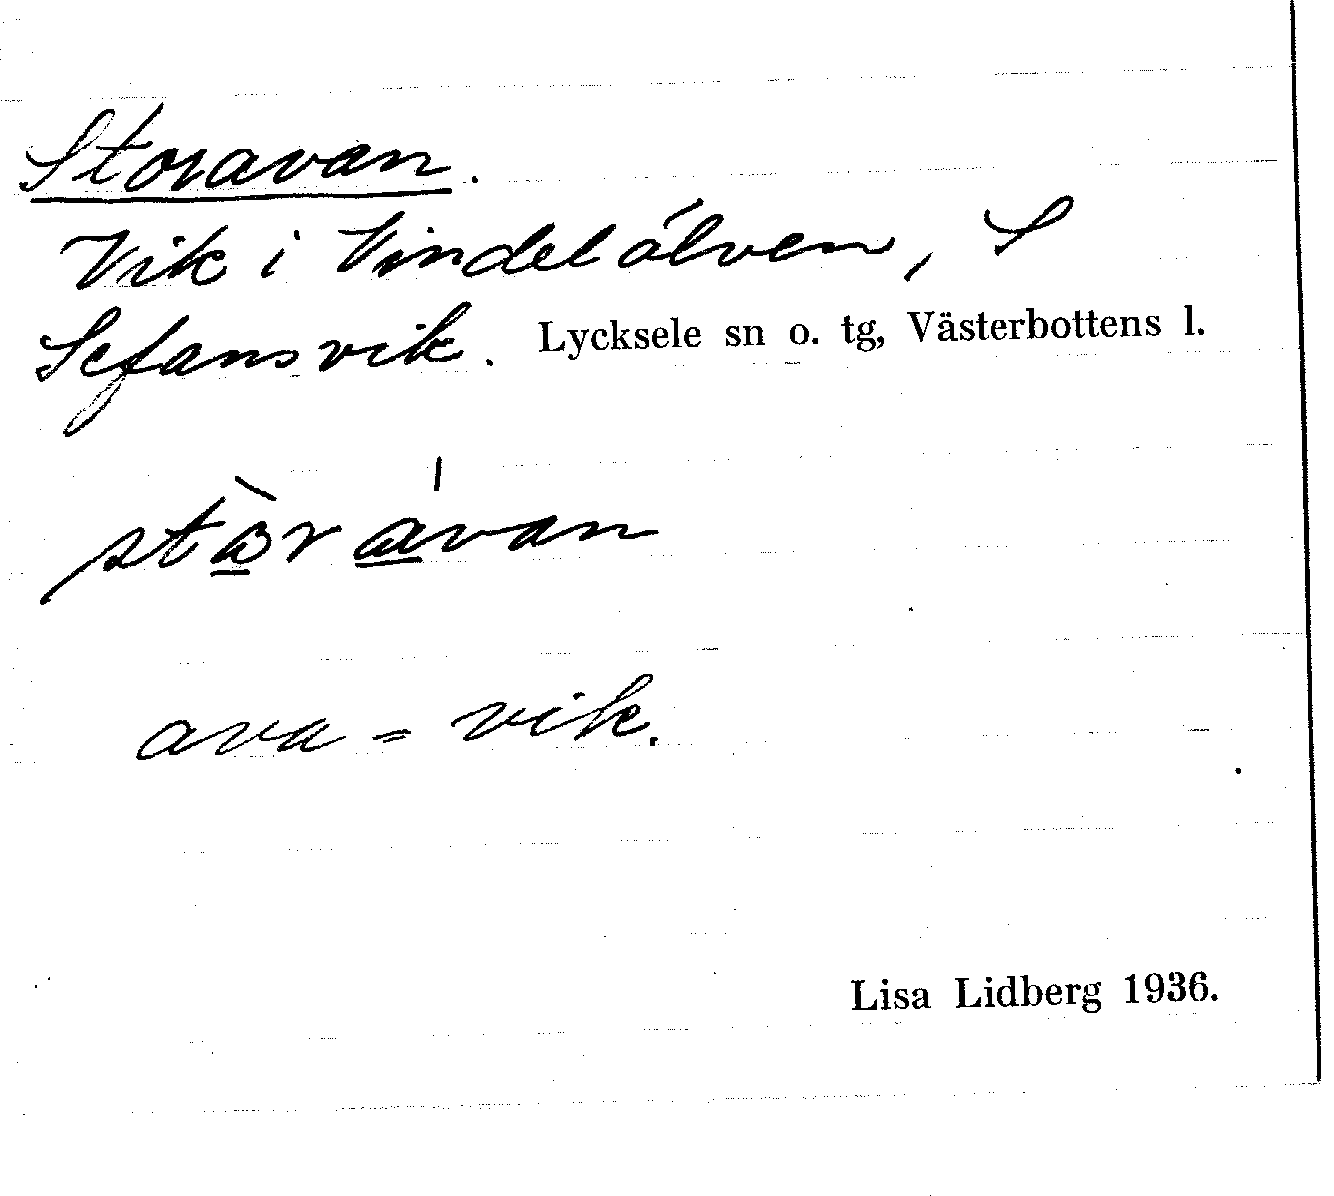 Storavan.
Vik i Vindelälven, S
Sefansvik. Lycksele sn o. tg, Västerbottens l.
ava = vik.
Lisa Lidberg 1936.